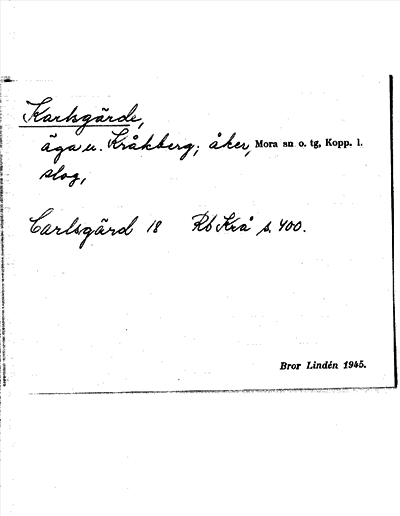 Karlsgärde,
äga u. Kråkberg; åker, Mora sn o. tg, Kopp. l.
slog,
Carlsgärd 18 Rb Krå s. 400.
Bror Lindén 1945.